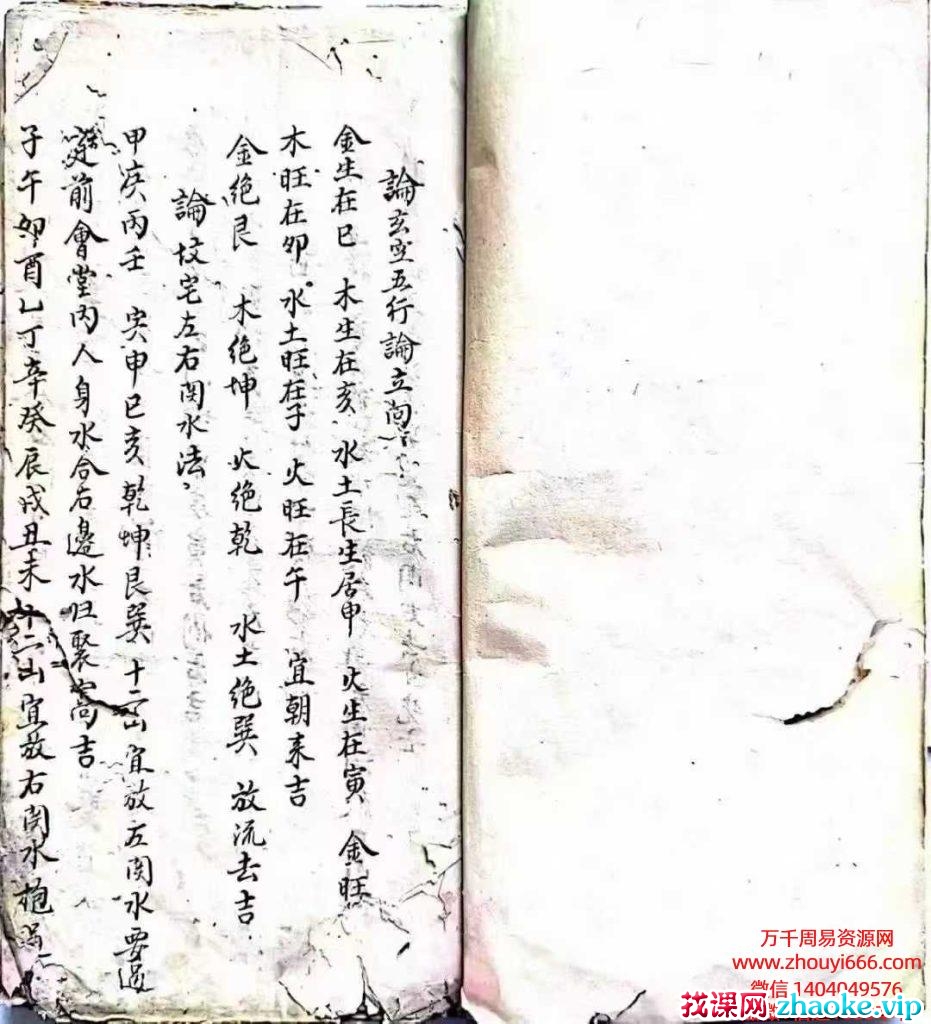 論玄空五行論立向
金生在巳 木生在亥 水土長生居申 火生在寅 金旺
木旺在卯 水土旺在子 火旺在午 宜朝来吉
金绝艮 木绝坤 火绝乾 水土绝巽 放流去吉
論坟宅左右関水法
甲庚丙壬 寅申巳亥乾坤艮巽十二山宜放左関水要過
穴前會堂内人身水合右邊水归聚爲吉
子午卯酉乙丁辛癸辰戌丑未十二山宜放右関水抱過
万千周易资源网
www.zhouyi666.com
微信 1404049576
找课网zhaoke.vip